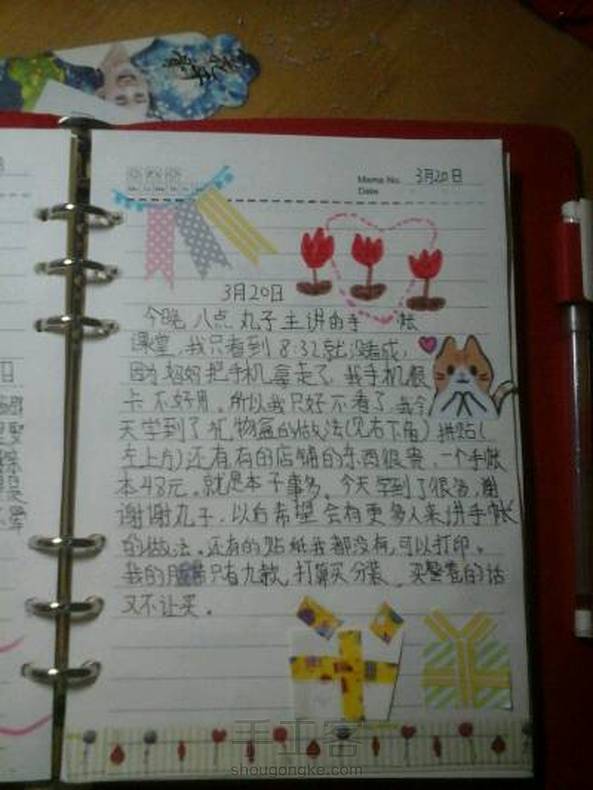 Memo No. 3月20日
Date
3月20日
今晚 八点 丸子主讲的手 帐
课堂,我只看到8:32就没看成,
因为妈妈把手机拿走了,我手机很
卡不好用。所以我只好不看了,我今
天学到了礼物盒的做法(见右下角)拼贴(
左上方)还有有的店铺的东西很贵,一个手帐
本48元。就是本子事多。今天学到了很多,谢
谢谢丸子,以后希望会有更多人来讲手帐
的做法。还有的贴纸我都没有,可以打印。
我的 只有九款,打算买分装,买整卷的话
又不让买。
手工客
shougongke.com